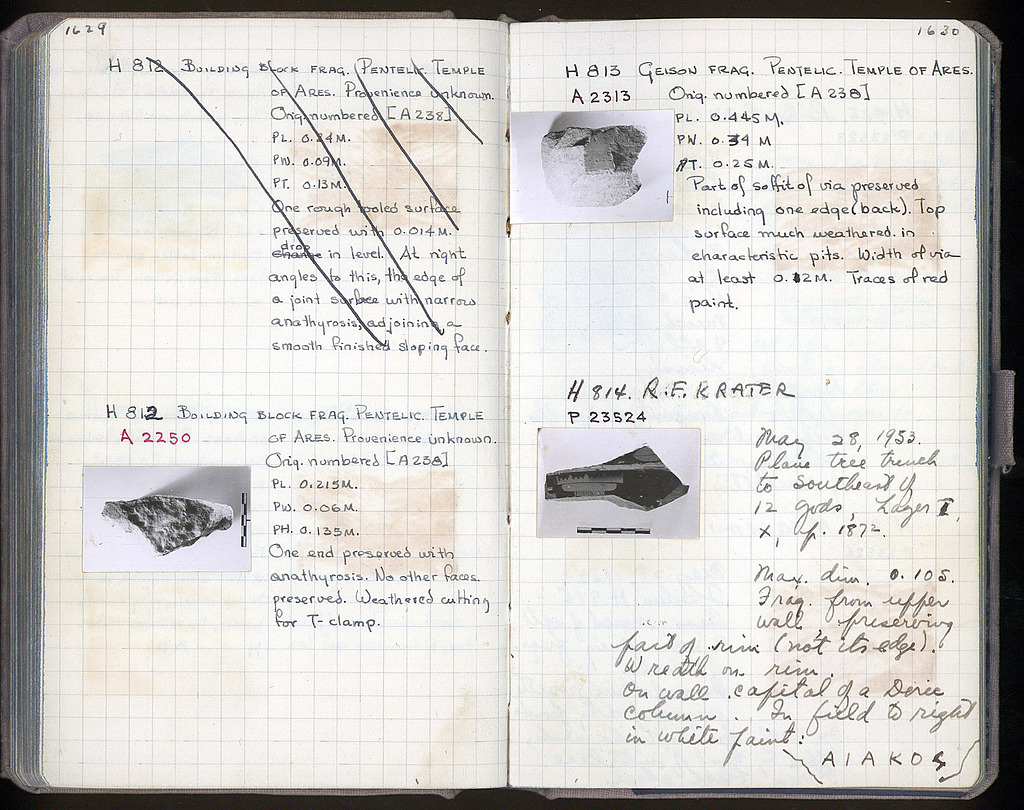 1629
H 812 BUILDING BLOCK FRAG. PENTELIC. TEMPLE
OF ARES. Provenience unknown.
Orig. numbered [A 238]
PL. 0.24M.
PW. 0.09M.
PT. 0.13M.
One rough tooled surface
preserved with 0.014M.
drop
change in level. At right
angles to this, the edge of
a joint surface with narrow
anathyrosis, adjoining a
smooth finished sloping face.
H 812 BUILDING BLOCK FRAG. PENTELIC. TEMPLE
A 2250 OF ARES. Provenience unknown.
Orig. numbered [A 238]
PL. 0.215M.
PW. 0.06M.
PH. 0.135M.
One end preserved with
anathyrosis. No other faces
preserved. Weathered cutting
for T-clamp.
1630
H 813 GEISON FRAG. PENTELIC. TEMPLE OF ARES.
A 2313 Orig. numbered [A 238]
PL. 0.445M.
PW. 0.34 M
PT. 0.25 M.
Part of soffit of via preserved
including one edge (back). Top
surface much weathered in
characteristic pits. Width of via
at least 0.12M. Traces of red
paint.
H 814. R.F. KRATER
P 23524
May 28, 1953.
Plane tree trench
to Southeast of
12 Gods, Layer I,
x, 1872.
Max. dim. 0.105.
Frag. from upper
wall, preserving
part of rim (not its edge).
Wreath on rim.
On wall capital of a Doric
column. In field to right
in white paint:
AIAKOS